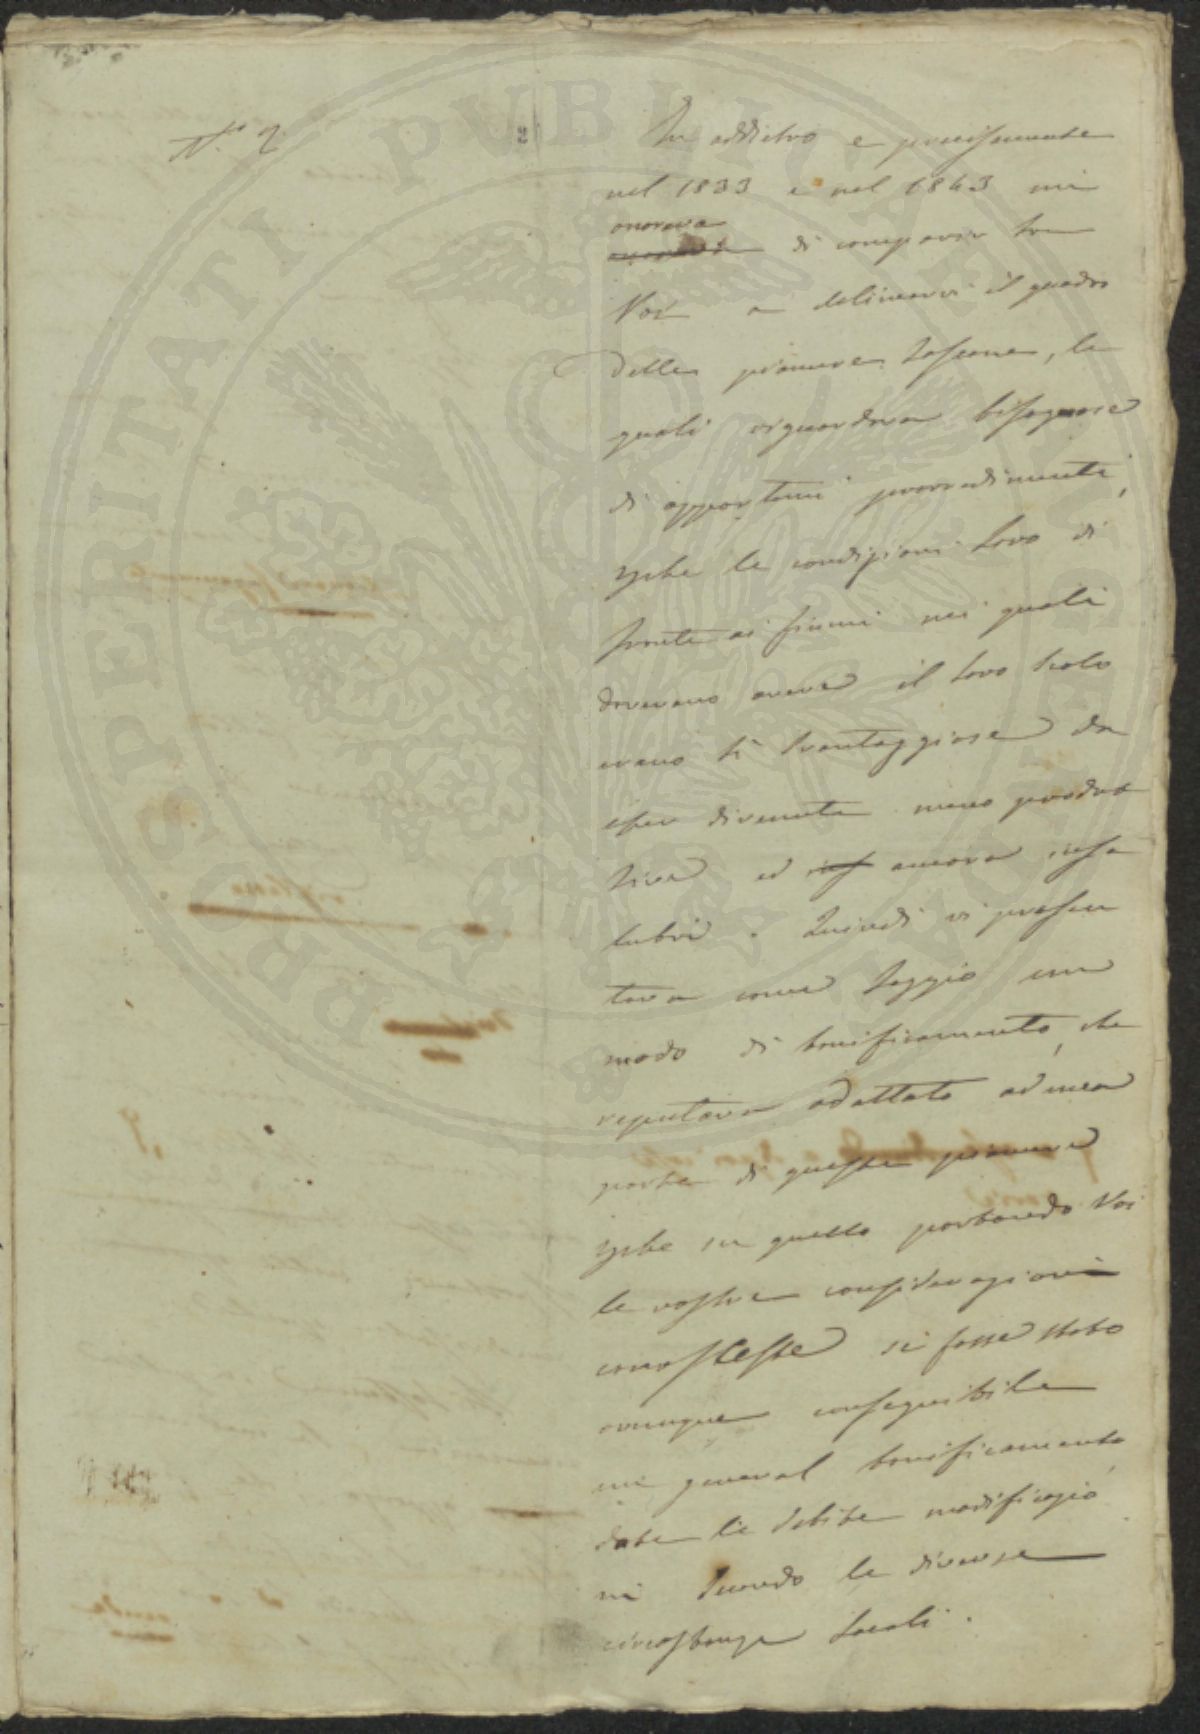 N.° 2
2
In addietro e precisamente
nel 1833 e nel 1843 mi
onorava
di comparir tra
Voi a delinearvi il quadro
delle pianure Toscane, le
quali riguardava bisognose
di opportuni provvedimenti,
che le condizioni loro di
fronte ai fiumi nei quali
dovevano avere il loro scolo
erano sì svantaggiose da
esser divenute meno produt
tive ed ancora insa
lubri. Quindi vi presen
tava come saggio un
modo di bonificamento, che
reputava adattato ad una
parte di queste pianure
che su quello portando Voi
le vostre considerazioni
conosceste se fosse stato
ovunque conseguibile
un general bonificamento
date le debite modificazio
ni secondo le diverse
circostanze locali.
PROSPERITATI PUBLICAE AUGENDAE